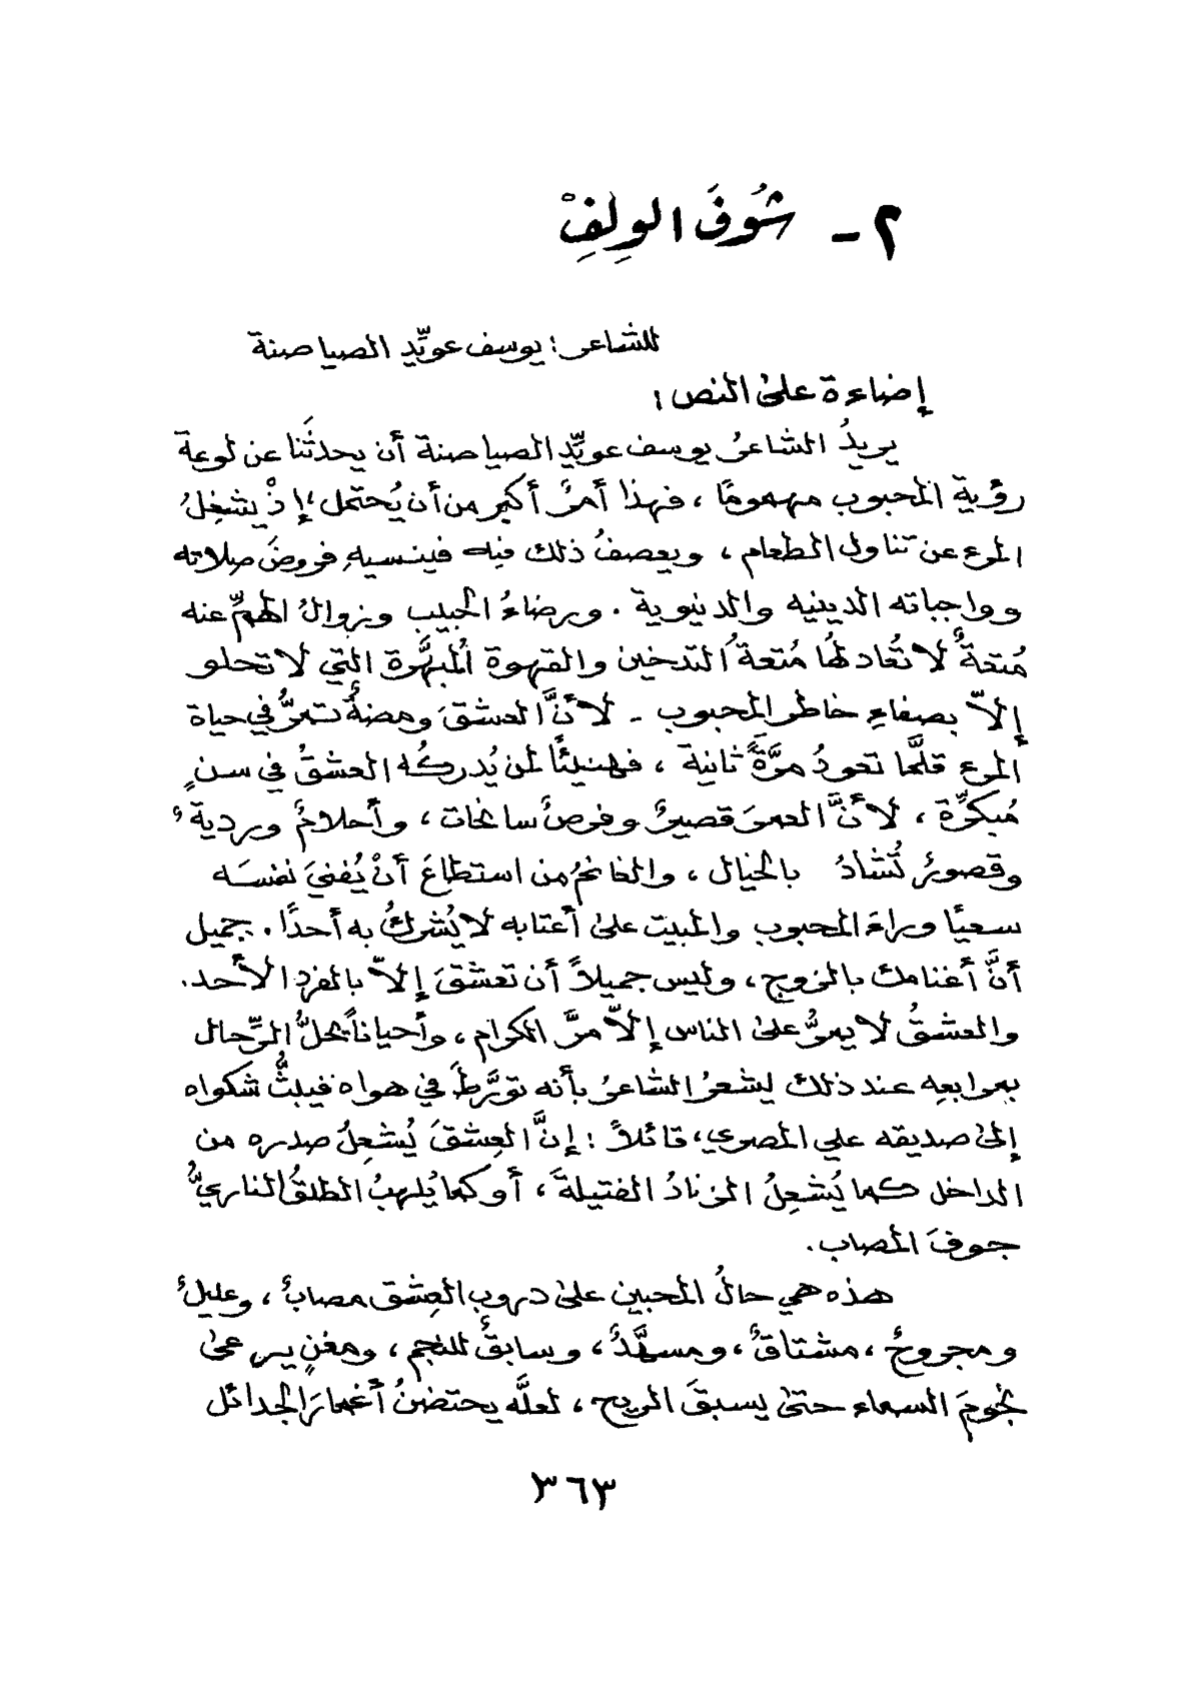 ٢ - شُوفَ الوِلِفِْ
للشاعر: يوسف عويِّد الصياصنة
إضاءة على النص:
يريدُ الشاعرُ يوسف عويِّد الصياصنة أن يحدثَنا عن لوعة
رؤية المحبوب مهمومًا، فهذا أمرٌ أكبر من أن يُحتمل، إذْ يشغِلُ
المرء عن تناول الطعام، ويعصفُ ذلك فيه فينسيهِ فروضَ صلاته
وواجباته الدينيه والدنيوية. ورضاءُ الحبيب وزوالُ الهمِّ عنه
مُتعةٌ لا تُعادلهُا مُتعةُ التدخين والقهوة المُبهَّرة التي لا تحلو
إلاّ بصفاءِ خاطر المحبوب - لأنَّ العشقَ ومضةٌ تمرُّ في حياة
المرء قلَّما تعودُ مرَّةً ثانية، فهنيئًا لمن يُدركُه العشقُ في سنٍ
مُبكرِّة، لأنَّ العمرَ قصيرٌ وفرصٌ سانحات، وأحلامٌ وردية،
وقصورٌ تُشادُ بالخيال، والغانمُ من استطاعَ أنْ يُفنيَ نفسَه
سعيًا وراءَ المحبوب والمبيت على أعتابه لا يُشركُ به أحدًا. جميل
أنَّ أغنامك بالزوج، وليس جميلاً أن تعشقَ إلاّ بالفرد الأحد.
والعشقُ لا يمرُّ على الناس إلاّ مرَّ الكرام، وأحياناً يحلُّ الرِّحال
بمرابعِه عند ذلك يشعرُ الشاعرُ بأنه تورَّطَ في هواه فيبثُّ شكواه
إلى صديقه علي المصري، قائلاً: إنَّ العِشقَ يُشعِلُ صدره من
الداخل كما يُشعِلُ الزنادُ الفتيلةَ، أو كما يُلهبُ الطلقُ الناريُّ
جوفَ المصاب.
هذه هي حالُ المحبين على دروب العِشق مصابٌ، وعليلٌ
ومجروحٌ، مشتاقٌ، ومسهَّدٌ، وسابقٌ للنجم، ومغنٍ يرعى
نجومَ السماء حتى يسبقَ الريح، لعلَّه يحتضنُ أغمارَ الجدائل
٣٦٣